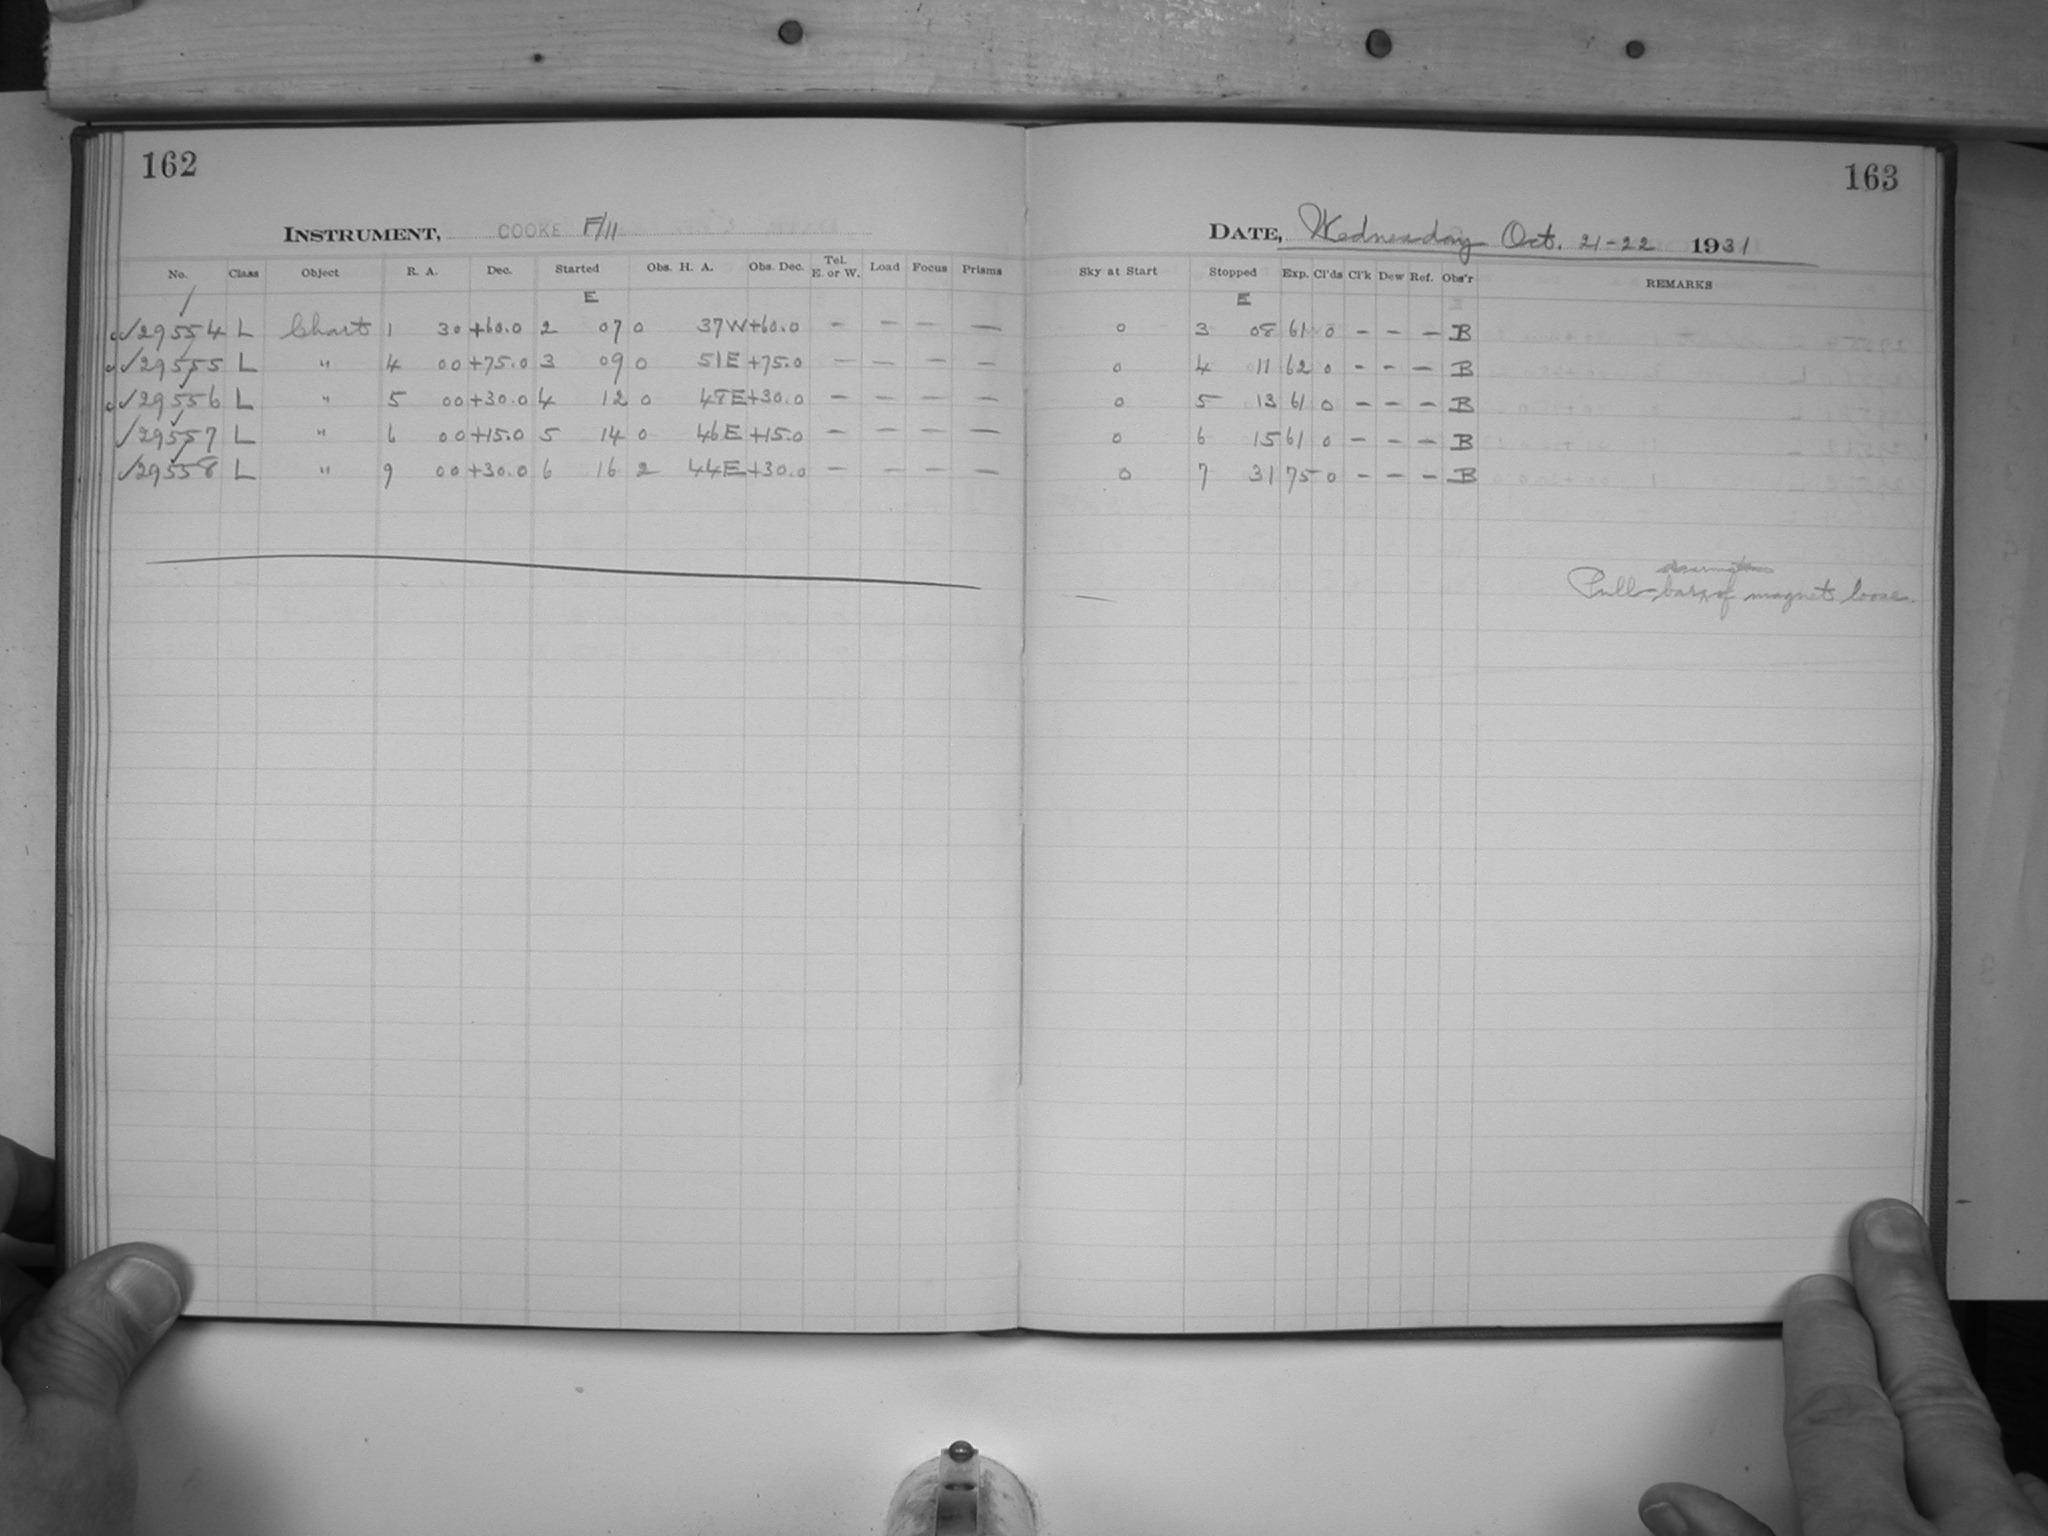 162
INSTRUMENT, COOKE F/11
No. Class Object R. A. Dec. Started Obs. H. A. Obs. Dec. Tel. E. or W. Load Focus Prisms
E
√29554 L Chart 1 30 +60.0 2 07 0 37W +60.0 - - - -
√29555 L " 4 00 +75.0 3 09 0 51E +75.0 - - - -
√29556 L " 5 00 +30.0 4 12 0 48E +30.0 - - - -
√29557 L " 6 00 +15.0 5 14 0 46E +15.0 - - - -
√29558 L " 9 00 +30.0 6 16 2 44E +30.0 - - - -
163
DATE, Wednesday Oct. 21-22 1931
Sky at Start Stopped Exp. Cl'ds Cl'k Dew Ref. Obs'r REMARKS
E
0 3 08 61 0 - - - B
0 4 11 62 0 - - - B
0 5 13 61 0 - - - B
0 6 15 61 0 - - - B
0 7 31 75 0 - - - B
Pull-bar of magnet loose.